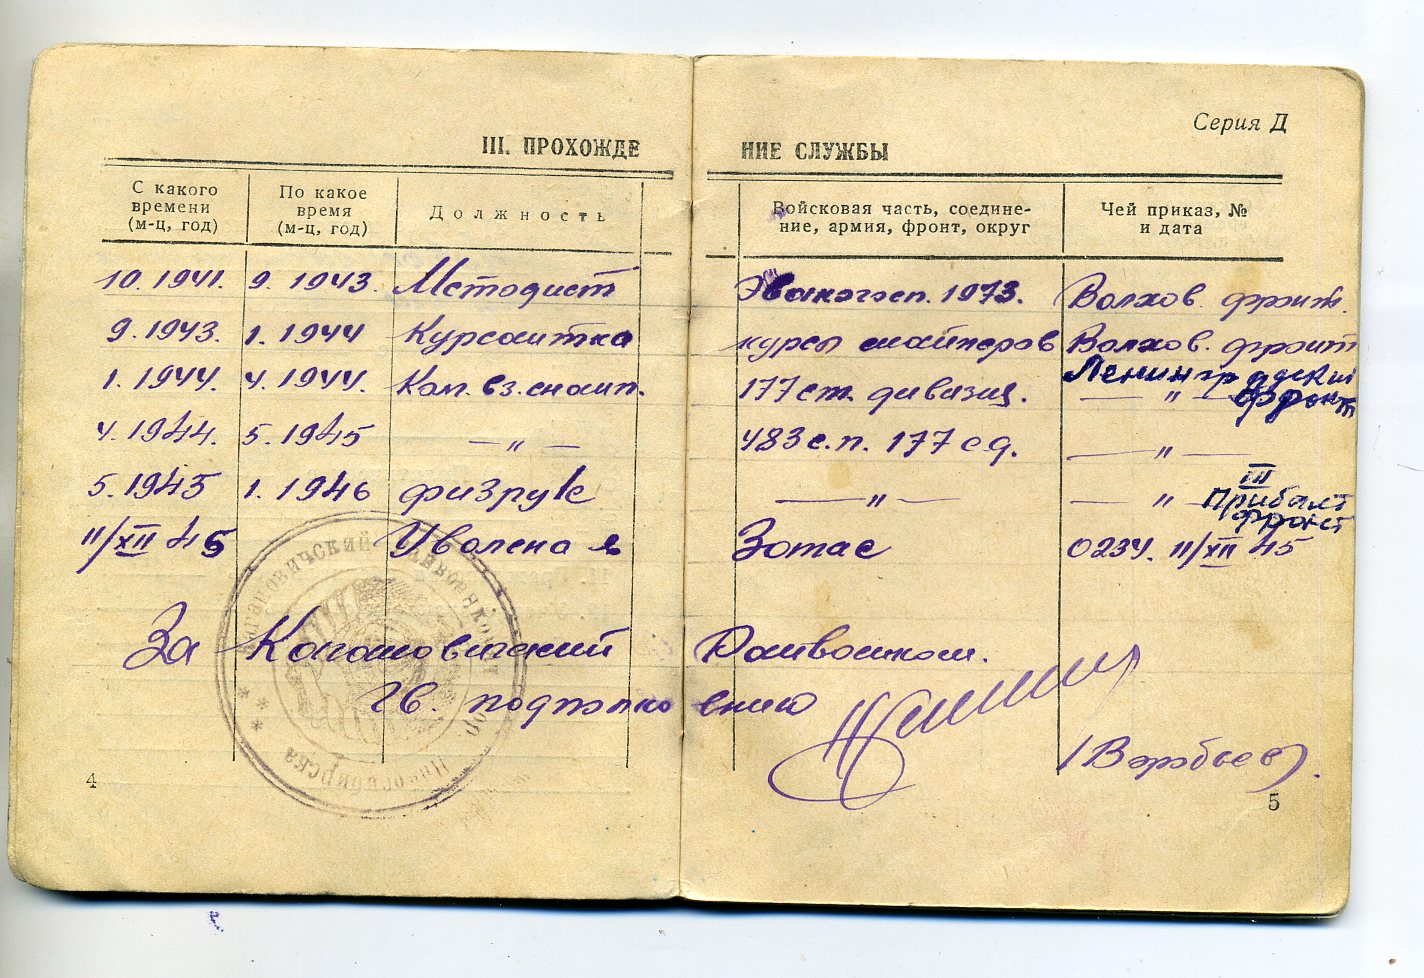 Серия Д
III. ПРОХОЖДЕ НИЕ СЛУЖБЫ
С какого времени (м-ц, год) По какое время (м-ц, год) Должность Войсковая часть, соедине- ние, армия, фронт, округ Чей приказ, № и дата
10. 1941. 9. 1943. Методист Эвакогосп. 1973. Волхов. фронт.
9. 1943. 1. 1944 Курсантка курсы снайперов Волхов. фронт
1. 1944. 4. 1944. Ком. вз. снайп. 177 ст. дивизия. — " — Ленинградский фронт
4. 1944. 5. 1945 — " — 483 с.п. 177 сд. — " —
5. 1945 1. 1946 физрук — " — — " — III Прибалт фронт
11/XII 45 Уволена в Запас 0234. 11/XII 45
За Кагановичский Райвоенком.
Гв. подполковник
(Воробьев).
Кагановичский райвоенкомат
гор. Новосибирска
4
5